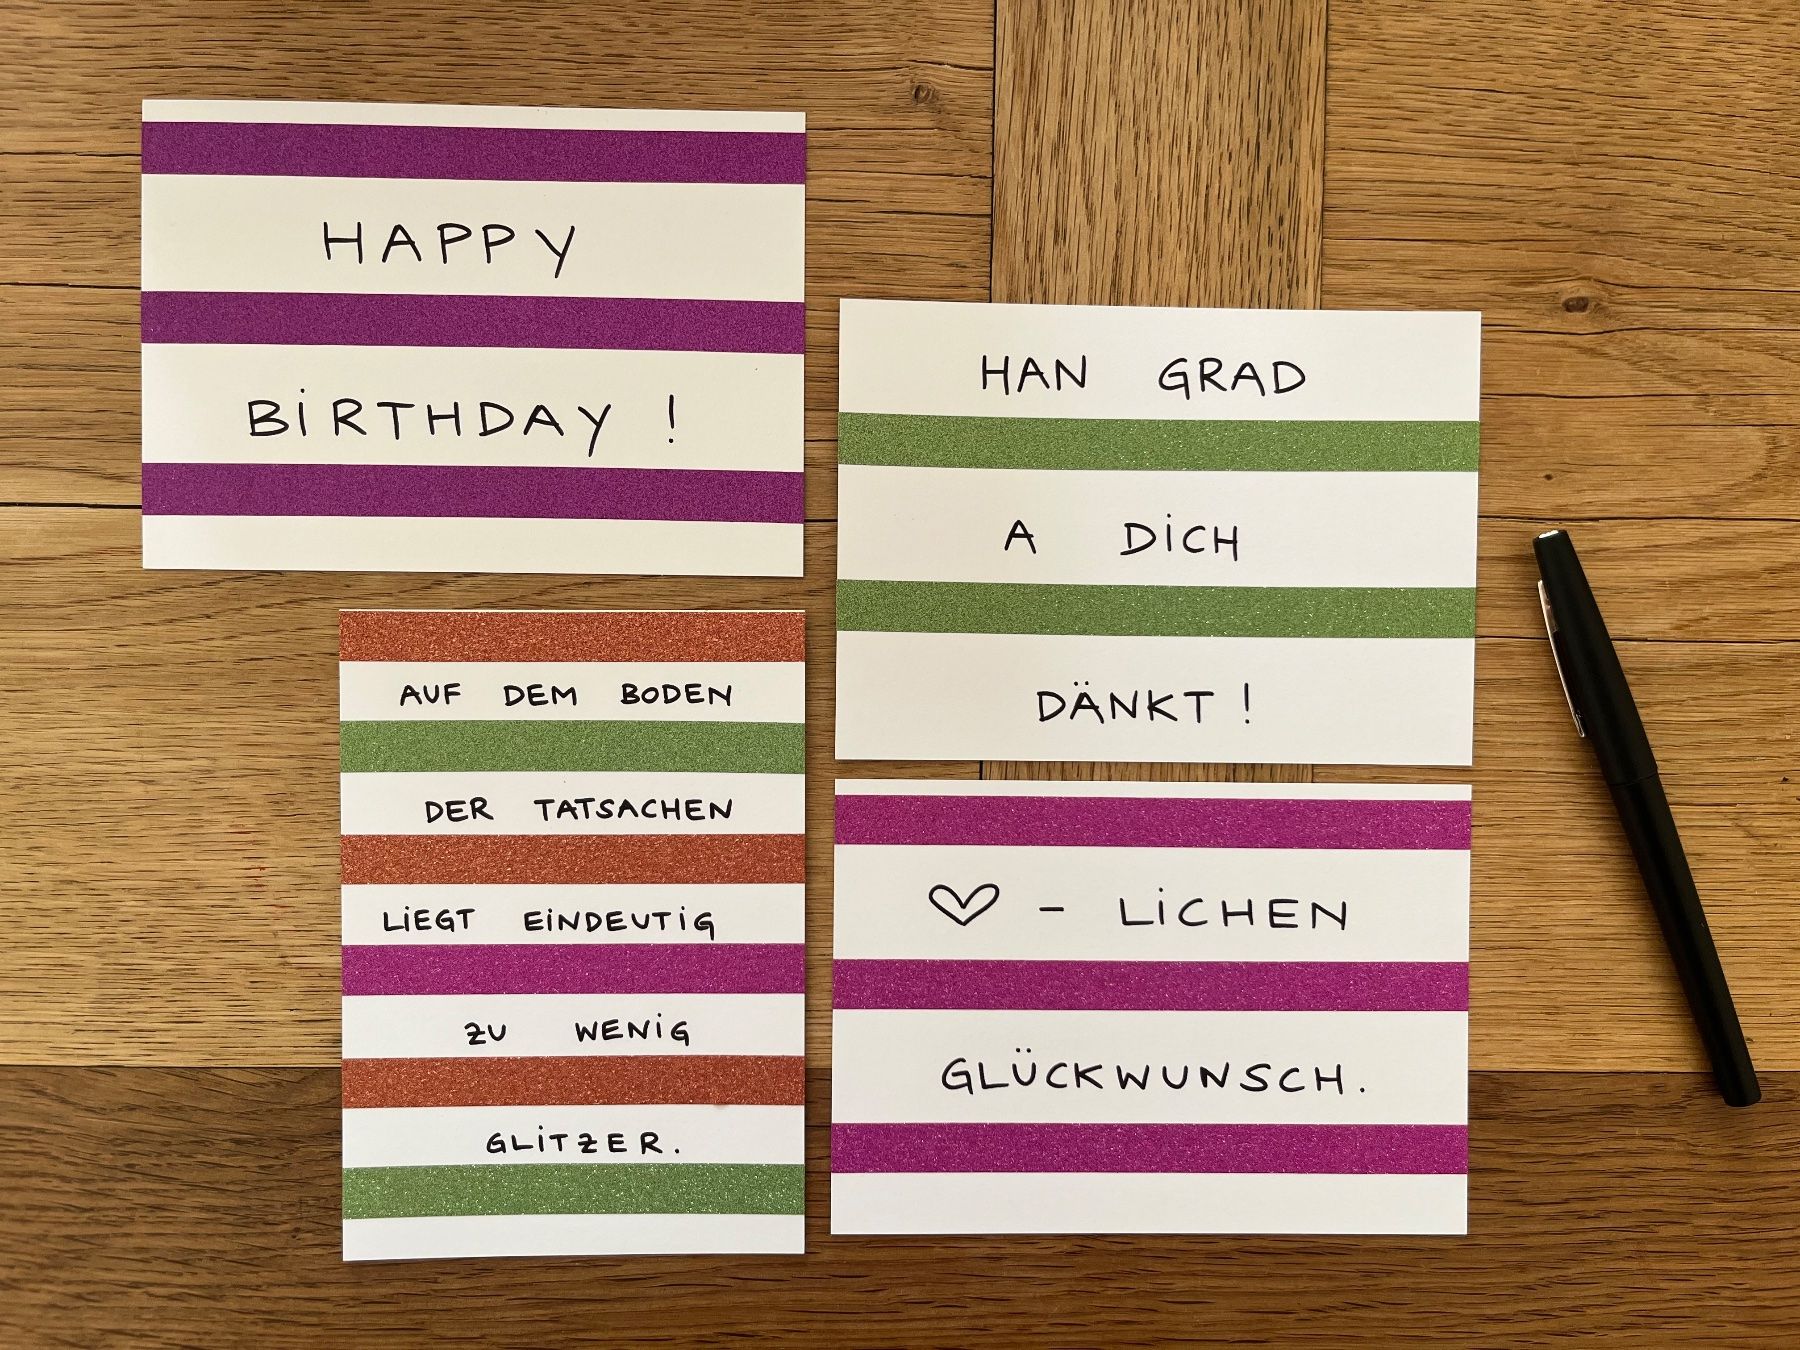 HAPPY
BIRTHDAY !
HAN GRAD
A DICH
DÄNKT !
AUF DEM BODEN
DER TATSACHEN
LIEGT EINDEUTIG
ZU WENIG
GLITZER.
♡ - LICHEN
GLÜCKWUNSCH.